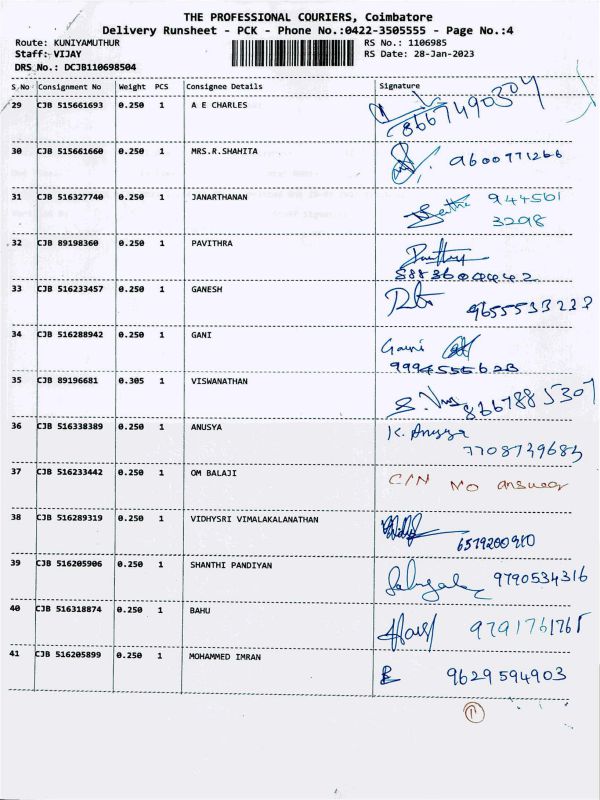 THE PROFESSIONAL COURIERS, Coimbatore
Delivery Runsheet - PCK - Phone No.:0422-3505555 - Page No.:4
Route: KUNIYAMUTHUR RS No.: 1106985
Staff: VIJAY RS Date: 28-Jan-2023
DRS No.: DCJB110698504
S No Consignment No Weight PCS Consignee Details Signature
29 CJB 515661693 0.250 1 A E CHARLES
8667490304
30 CJB 515661660 0.250 1 MRS.R.SHAHITA 9600771266
31 CJB 516327740 0.250 1 JANARTHANAN 944501
3298
32 CJB 89198360 0.250 1 PAVITHRA
33 CJB 516233457 0.250 1 GANESH
9655533237
34 CJB 516288942 0.250 1 GANI
Gani
9994555623
35 CJB 89196681 0.305 1 VISWANATHAN
8667885307
36 CJB 516338389 0.250 1 ANUSYA K. Anusya
7708739683
37 CJB 516233442 0.250 1 OM BALAJI C/N No answer
38 CJB 516289319 0.250 1 VIDHYSRI VIMALAKALANATHAN
6379200910
39 CJB 516205906 0.250 1 SHANTHI PANDIYAN 9790534316
40 CJB 516318874 0.250 1 BAHU 9791761765
41 CJB 516205899 0.250 1 MOHAMMED IMRAN 9629594903
11